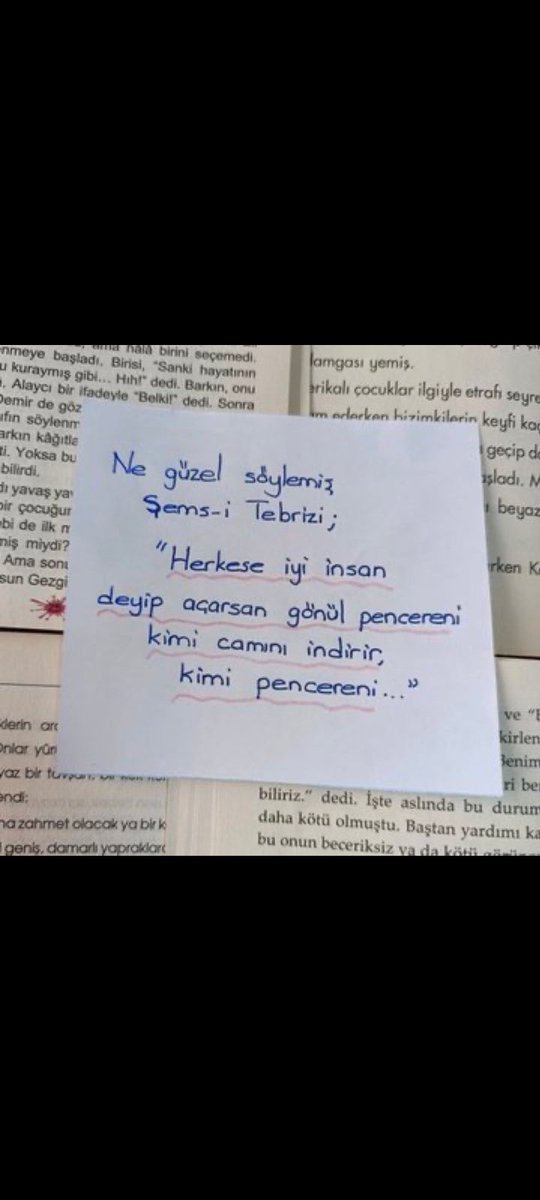 ama hâlâ birini seçemedi.
nmeye başladı. Birisi, "Sanki hayatının
u kuraymış gibi... Hıh!" dedi. Barkın, onu
Alaycı bir ifadeyle "Belki!" dedi. Sonra
Demir de göz
ıfın söylenm
arkın kâğıtla
ti. Yoksa bu
bilirdi.
dı yavaş yav
bir çocuğur
bi de ilk
miş miydi?
Ama sonu
sun Gezgi
lamgası yemiş.
erikalı çocuklar ilgiyle etrafı seyre
ederken bizimkilerin keyfi kaç
geçip
şladı. M
beyaz
rken K
Ne güzel söylemiş
Şems-i Tebrizi;
"Herkese iyi insan
deyip açarsan gönül pencereni
kimi camını indirir,
kimi pencereni..."
klerin arc
Onlar yür
yaz bir
endi:
na zahmet olacak ya bir k
geniş, damarlı yapraklar
ve "B
kirlen
Benim
ri be
biliriz." dedi. İşte aslında bu durum
daha kötü olmuştu. Baştan yardımı ka
bu onun beceriksiz ya da kötü